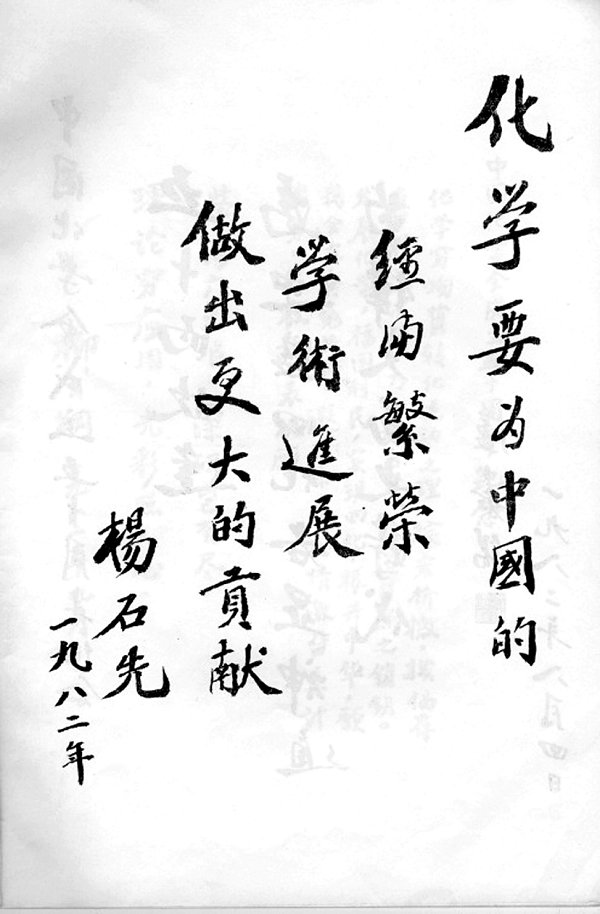 化学要为中國的
經济繁荣
学術進展
做出更大的貢献
楊石先
一九八二年